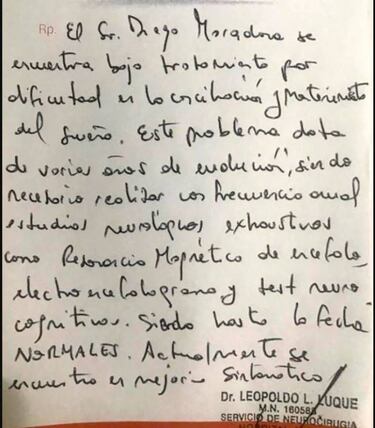 Rp. El Sr. Diego Maradona se
encuentra bajo tratamiento por
dificultad en la conciliación y mantenimiento
del sueño. Este problema data
de varios años de evolución, siendo
necesario realizar con frecuencia anual
estudios neurológicos exhaustivos
como Resonancia Magnética de encéfalo,
electroencefalograma y test neuro
cognitivos. Siendo hasta la fecha
NORMALES. Actualmente se
encuentra en mejoría sintomática
Dr. LEOPOLDO L. LUQUE
M.N. 160585
SERVICIO DE NEUROCIRUGIA